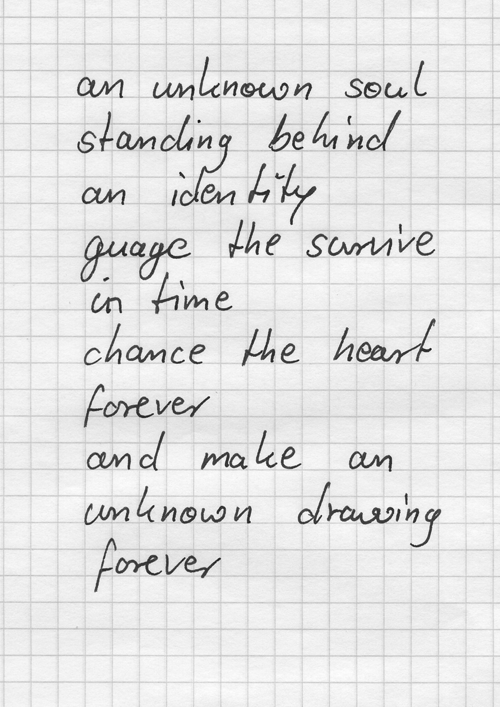 an unknown soul
standing behind
an identity
guage the survive
in time
chance the heart
forever
and make an
unknown drawing
forever